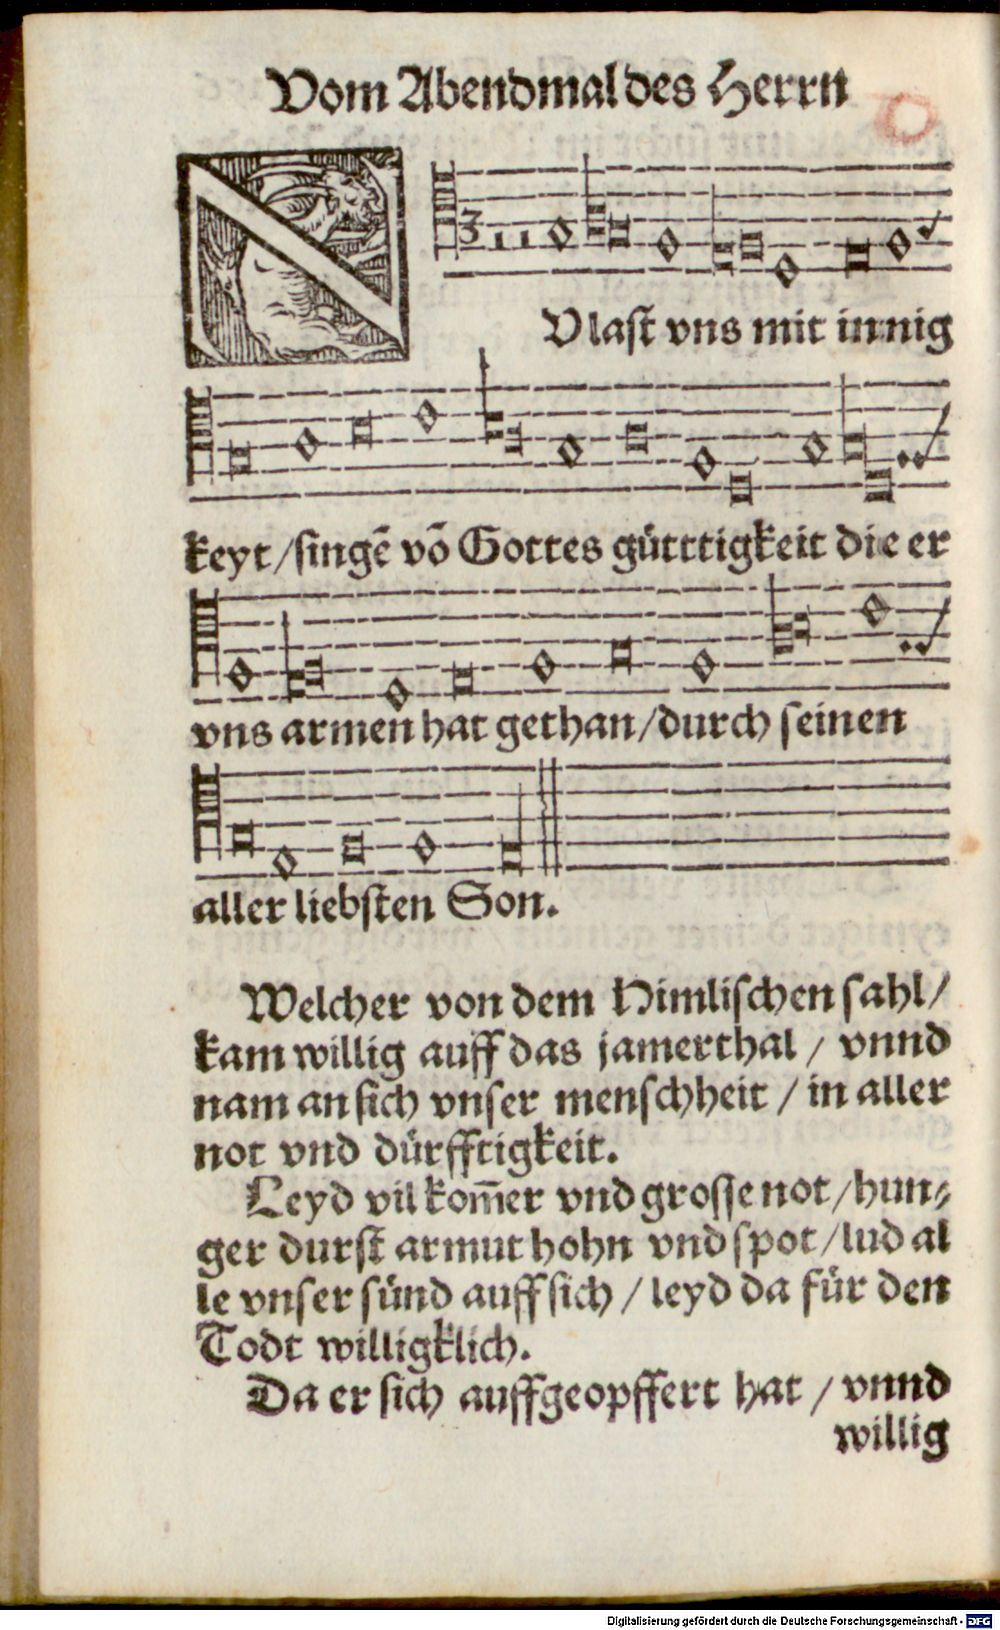 Vom Abendmal des Herrn
NVlaſt vns mit innig
keyt / ſingē vō Gottes gütttigkeit die er
vns armen hat gethan / durch ſeinen
aller liebſten Son.
Welcher von dem Himliſchen ſahl /
kam willig auff das jamerthal / vnnd
nam an ſich vnſer menſchheit / in aller
not vnd dürfftigkeit.
Leyd vil kom̄er vnd groſſe not / hun⸗
ger durſt armut hohn vnd ſpot / lud al
le vnſer ſünd auff ſich / leyd da für den
Todt willigklich.
Da er ſich auffgeopffert hat / vnnd
willig
Digitalisierung gefördert durch die Deutsche Forschungsgemeinschaft - DFG